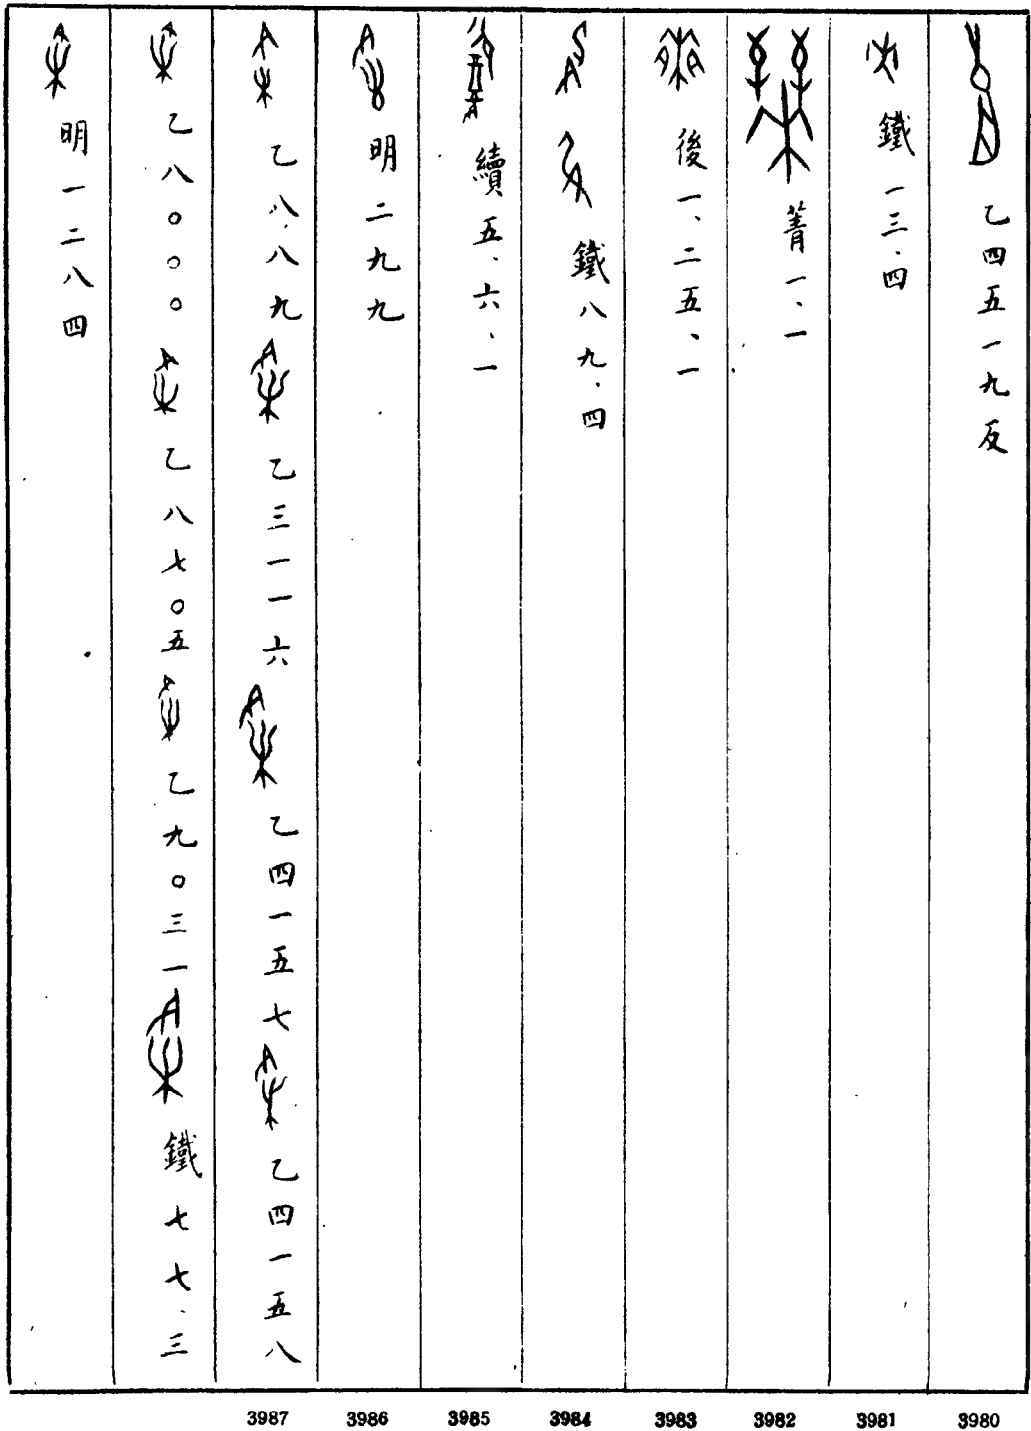 乙四五一九反
鐵一三.四
菁一、一
後一、二五、一
鐵八九.四
續五、六、一
明二九九
乙八八九 乙三一一六 乙四一五七 乙四一五八
乙八〇〇〇 乙八七〇五 乙九〇三一 鐵七七.三
明一二八四
3987 3986 3985 3984 3983 3982 3981 3980